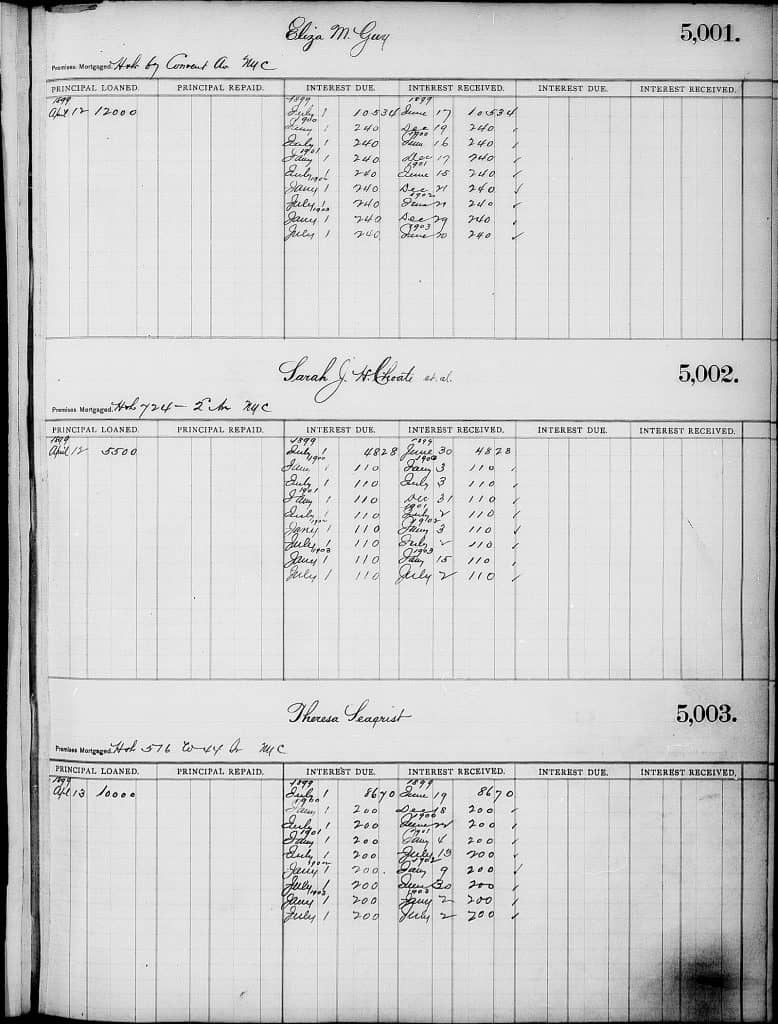 Eliza M. Guy
5,001.
Premises Mortgaged. by Convent Av NYC
PRINCIPAL LOANED. PRINCIPAL REPAID. INTEREST DUE. INTEREST RECEIVED. INTEREST DUE. INTEREST RECEIVED.
1899 1899 1899
April 12 12000 July 1 105 34 June 17 105 34
1900
Jany 1 240 Dec 19 240 ✓
1900
July 1 240 June 16 240 ✓
1901
Jany 1 240 Dec 17 240 ✓
1901
July 1 240 June 15 240 ✓
1902
Jany 1 240 Dec 21 240 ✓
1902
July 1 240 June 21 240 ✓
1903
Jany 1 240 Dec 29 240 ✓
1903
July 1 240 June 20 240 ✓
Sarah J. H. Choate et. al.
5,002.
Premises Mortgaged. 724 - 2 Av NYC
PRINCIPAL LOANED. PRINCIPAL REPAID. INTEREST DUE. INTEREST RECEIVED. INTEREST DUE. INTEREST RECEIVED.
1899 1899 1899
April 12 5500 July 1 48 28 June 30 48 28
1900 1900
Jany 1 110 Jany 3 110 ✓
July 1 110 July 3 110 ✓
1901
Jany 1 110 Dec 31 110 ✓
1901
July 1 110 July 2 110 ✓
1902 1902
Jany 1 110 Jany 3 110 ✓
July 1 110 July 2 110 ✓
1903 1903
Jany 1 110 Jany 15 110 ✓
July 1 110 July 2 110 ✓
Theresa Seagrist
5,003.
Premises Mortgaged. 516 W 44 St NYC
PRINCIPAL LOANED. PRINCIPAL REPAID. INTEREST DUE. INTEREST RECEIVED. INTEREST DUE. INTEREST RECEIVED.
1899 1899 1899
Apl 13 10000 July 1 86 70 June 19 86 70
1900
Jany 1 200 Dec 18 200 ✓
1900
July 1 200 June 22 200 ✓
1901 1901
Jany 1 200 Jany 4 200 ✓
July 1 200 July 13 200 ✓
1902 1902
Jany 1 200 Jany 9 200 ✓
July 1 200 June 30 200 ✓
1903 1903
Jany 1 200 Jany 2 200 ✓
July 1 200 July 2 200 ✓